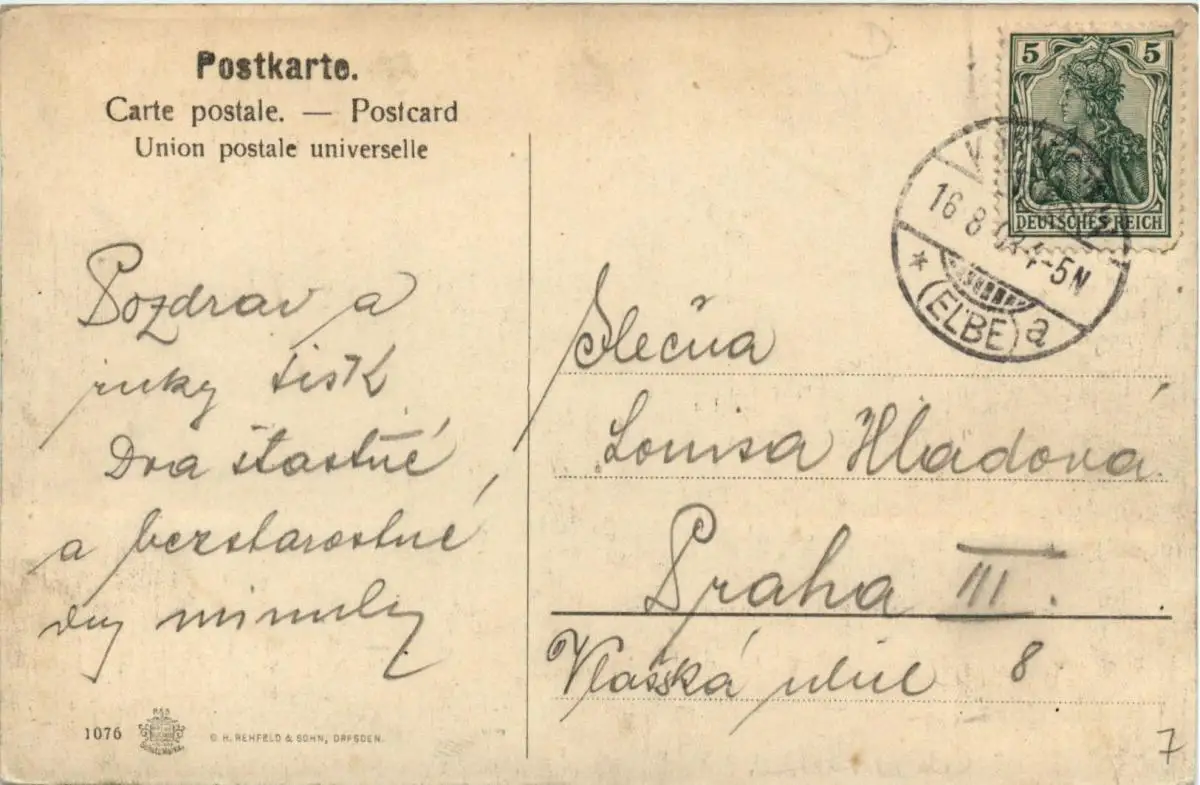 Postkarte.
Carte postale. — Postcard
Union postale universelle
5 5
DEUTSCHES REICH
16 8 4-5N
* (ELBE) a
Pozdrav a
ruky tisk
Dva šťastné
a bezstarostné
dny minuly
Slečna
Louisa Hladová
Praha III.
Vlašská ulice 8
1076
© H. REHFELD & SOHN, DRESDEN.
7